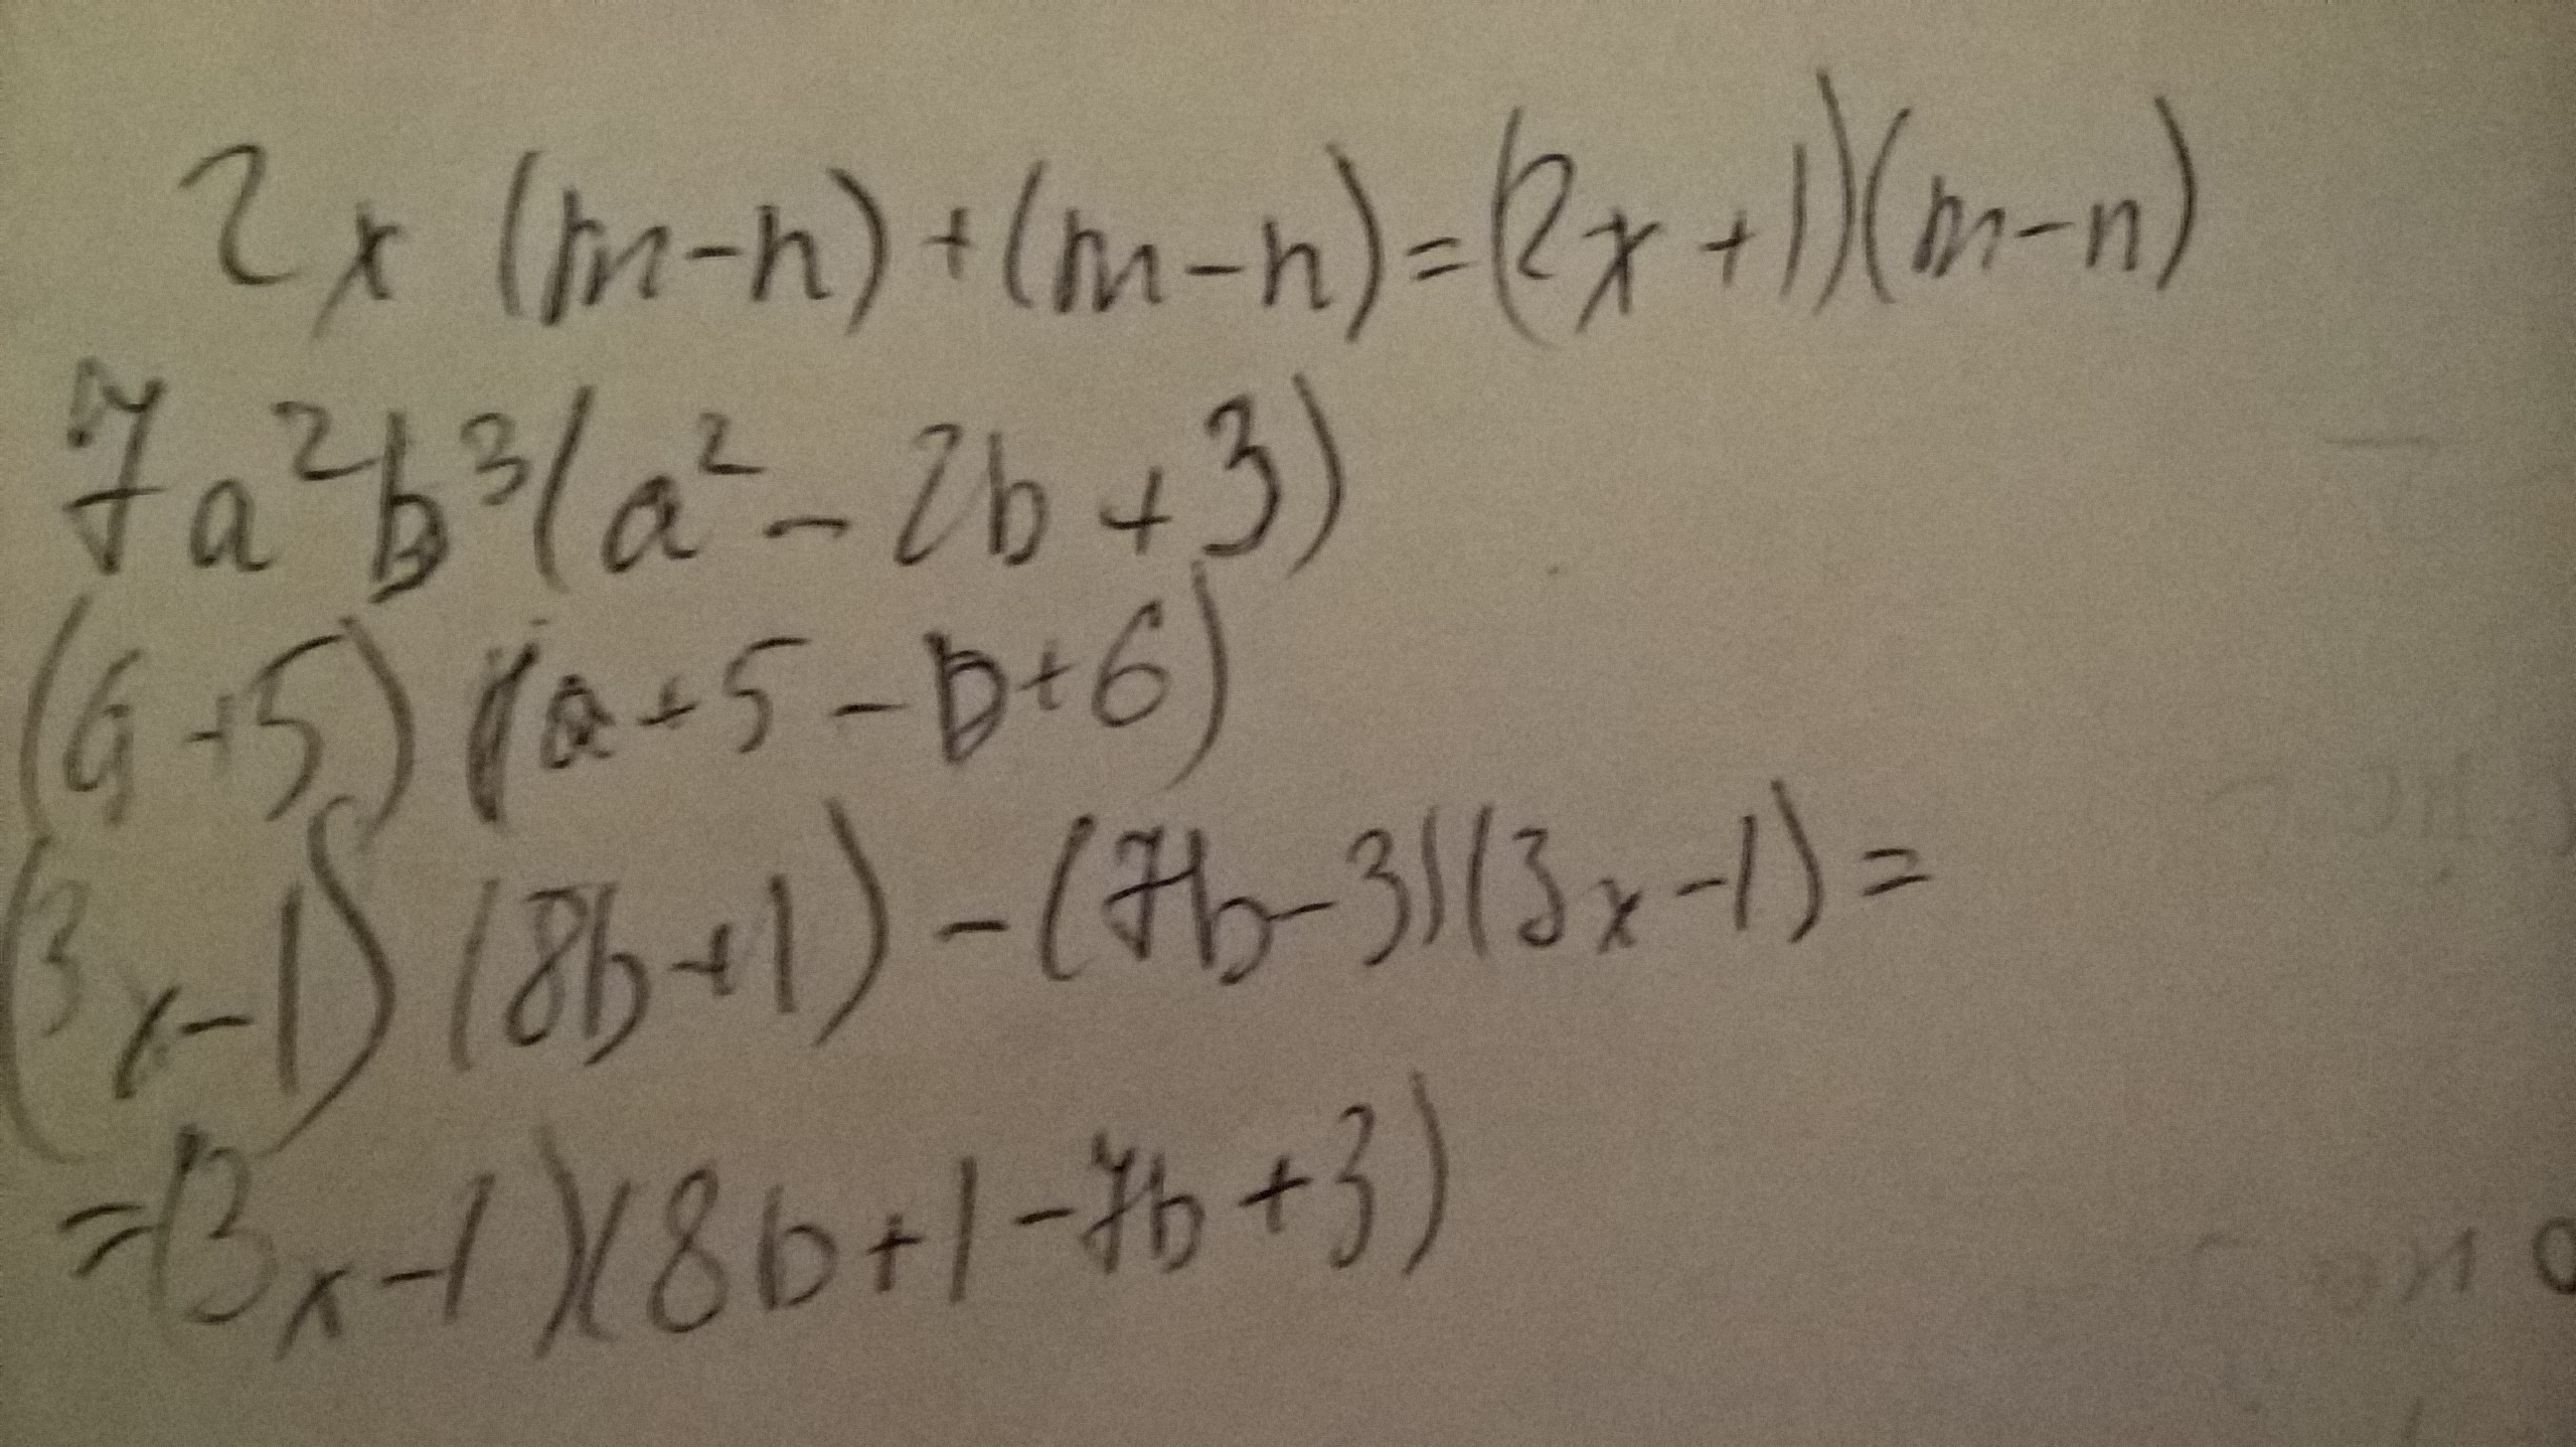 2x (m-n)+(m-n)=(2x+1)(m-n)
7a²b³(a²-2b+3)
(a+5)(a+5-b+6)
(3x-1)(8b+1)-(7b-3)(3x-1)=
=(3x-1)(8b+1-7b+3)